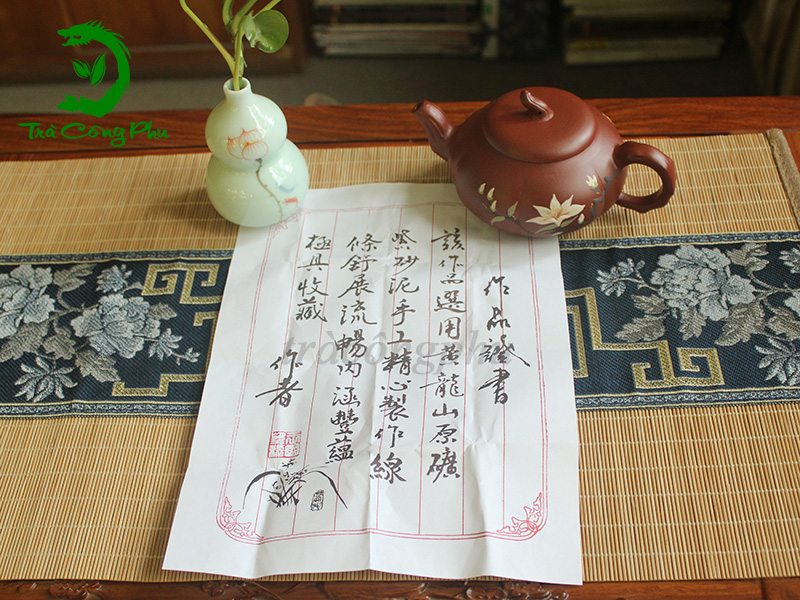 Trà Công Phu
作品證書
該作品選用黃龍山原礦
紫砂泥手工精心製作線
條舒展流暢內涵豐蘊
極具收藏
作者
tràcôngphu